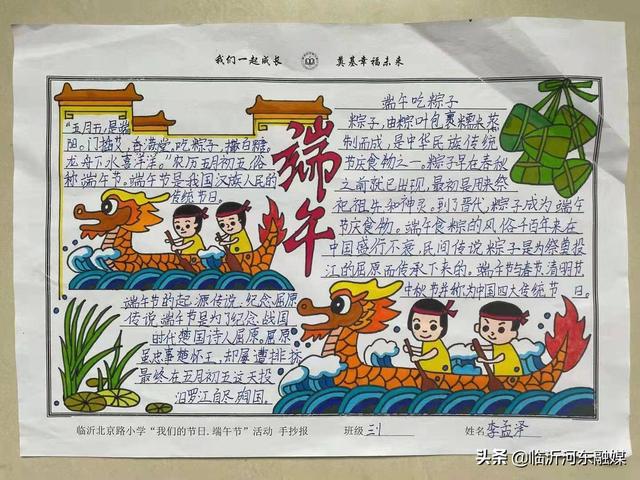 我们一起成长 奠基幸福未来
“五月五,是端
阳。门插艾,香满堂,吃粽子,撒白糖,
龙舟下水喜洋洋。”农历五月初五俗
称端午节。端午节是我国汉族人民的
传统节日。
端午
端午吃粽子
粽子,由粽叶包裹糯米蒸
制而成,是中华民族传统
节庆食物之一。粽子早在春秋
之前就已出现,最初是用来祭
祀祖先和神灵。到了晋代,粽子成为端午
节庆食物。端午食粽的风俗千百年来在
中国盛行不衰,民间传说粽子是为祭奠投
江的屈原而传承下来的。端午节与春节清明节
中秋节并称为中国四大传统节日。
端午节的起源传说,纪念屈原
传说端午节是为了纪念战国
时代楚国诗人屈原。屈原
忠事楚怀王,却屡遭排挤
最终在五月初五这天投
汨罗江自尽殉国。
临沂北京路小学“我们的节日.端午节”活动 手抄报 班级 三1 姓名 李孟泽
头条 @临沂河东融媒